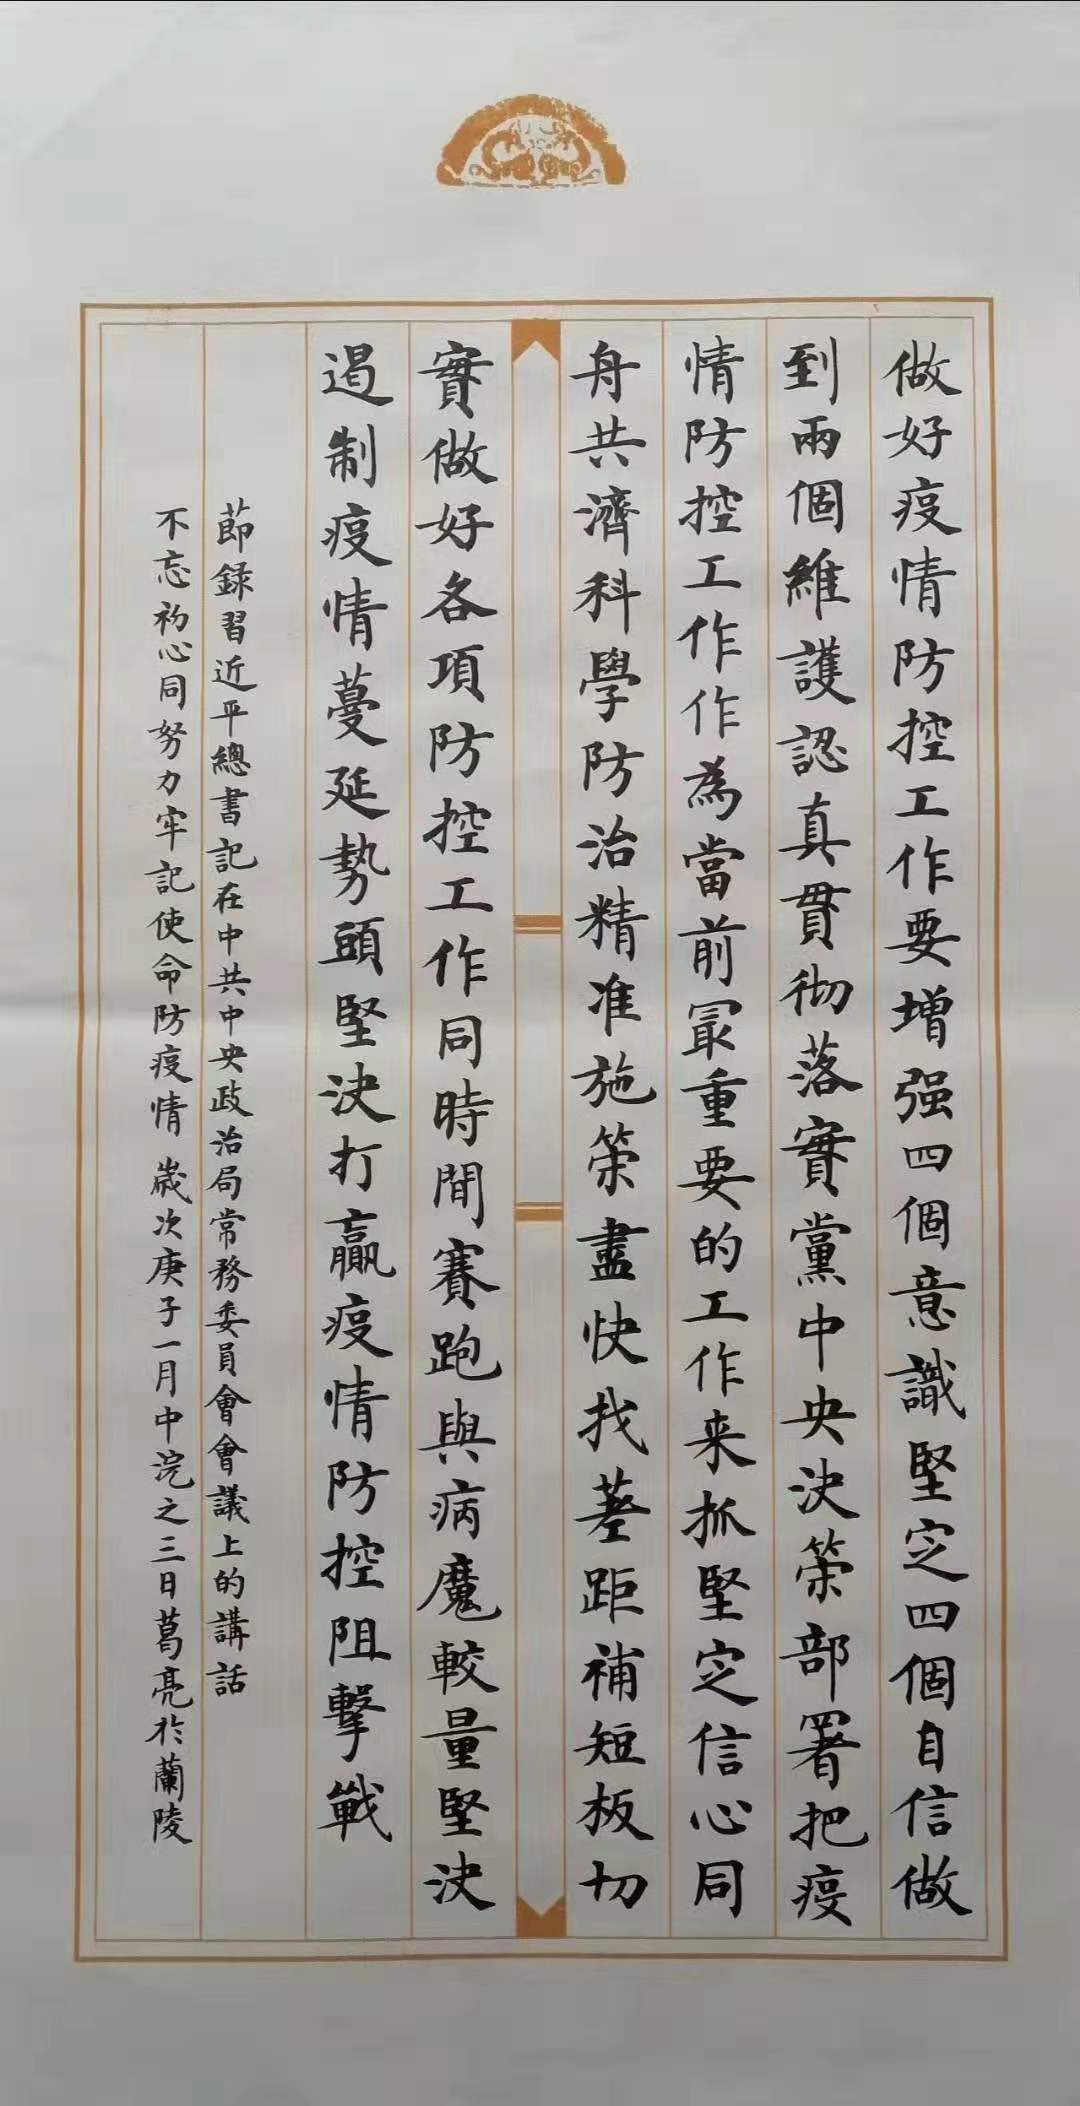 做好疫情防控工作要增强四個意識堅定四個自信做
到兩個維護認真貫彻落實黨中央決策部署把疫
情防控工作作為當前冣重要的工作来抓堅定信心同
舟共濟科學防治精准施策盡快找差距補短板切
實做好各項防控工作同時間賽跑與病魔較量堅決
遏制疫情蔓延勢頭堅決打贏疫情防控阻擊戰
節録習近平總書記在中共中央政治局常務委員會會議上的講話
不忘初心同努力牢記使命防疫情 歲次庚子一月中浣之三日葛亮於蘭陵